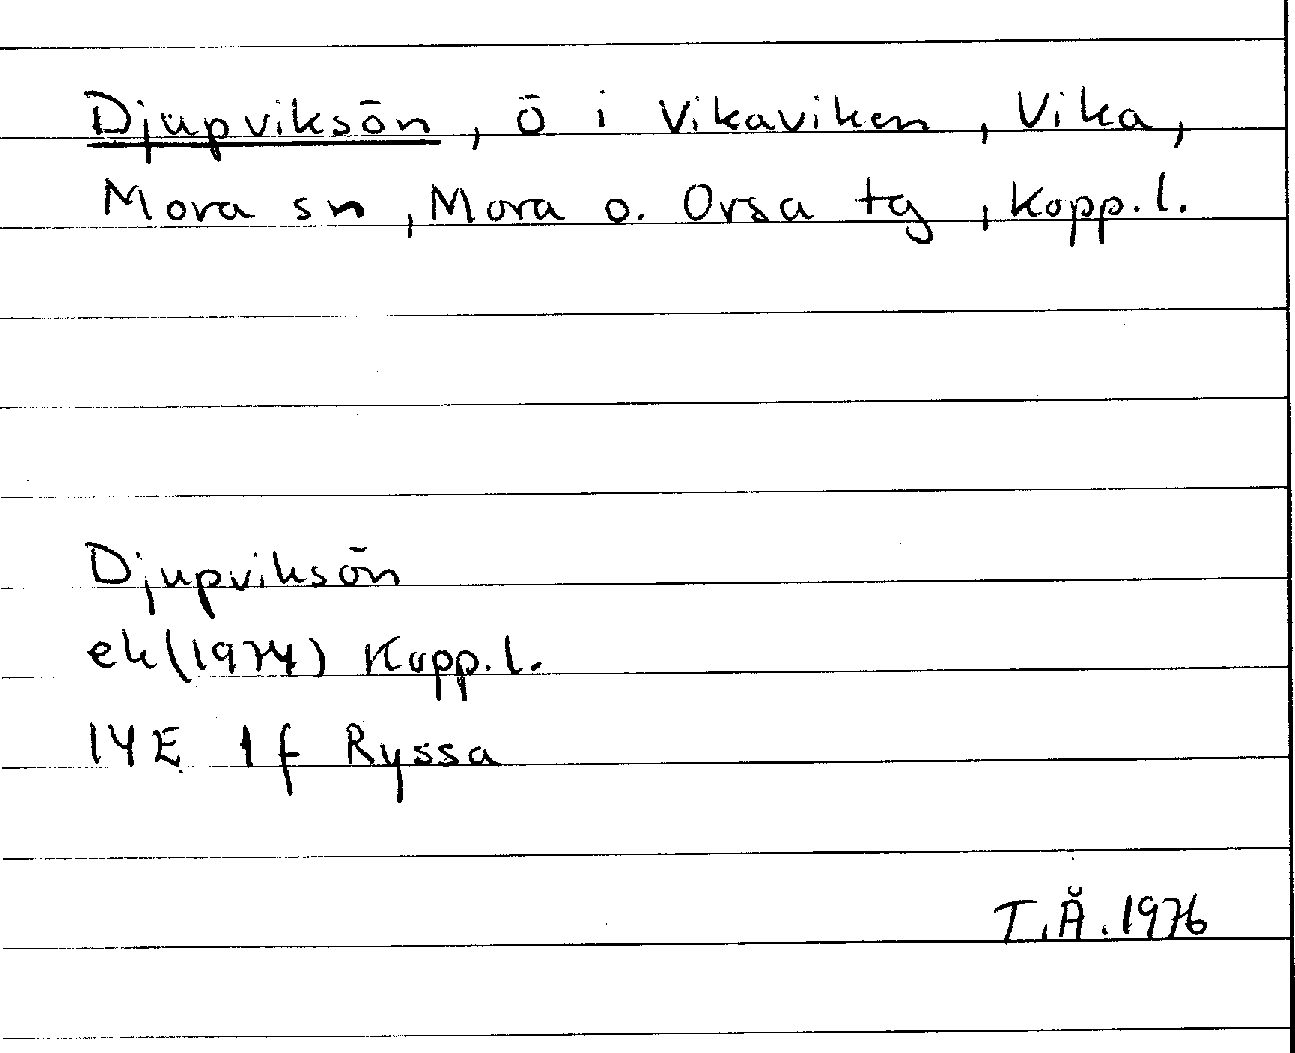 Djupviksön, ö i Vikaviken, Vika,
Mora sn, Mora o. Orsa tg, Kopp. l.
Djupviksön
ek (1974) Kopp. l.
14E 1f Ryssa
T.Å. 1976